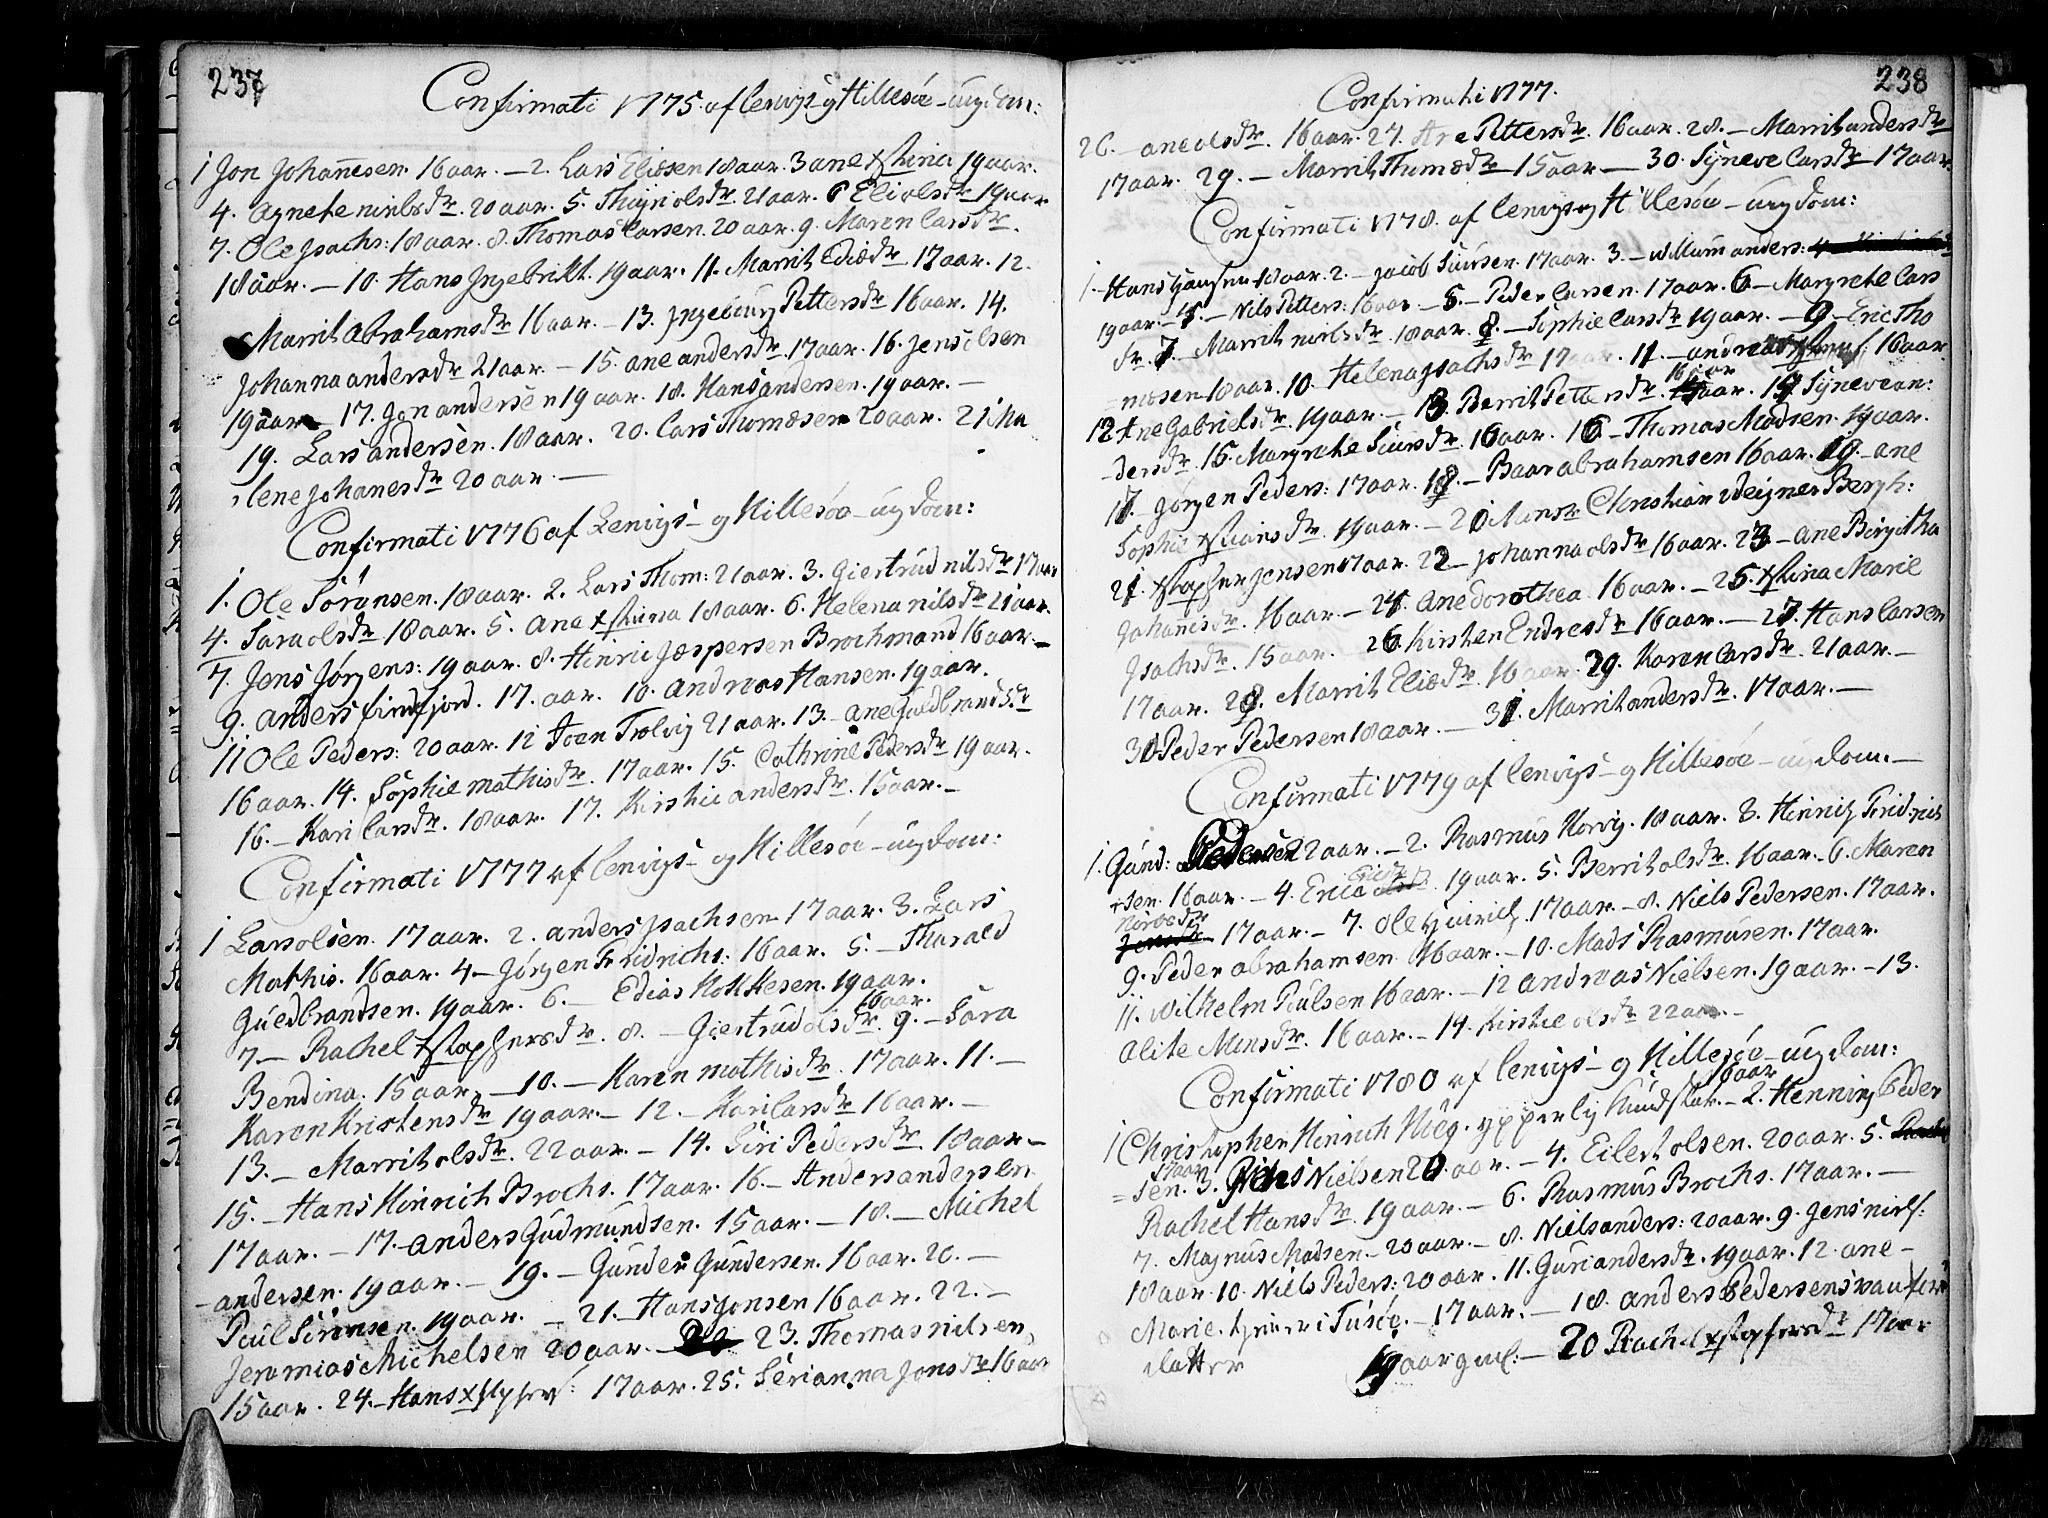 237
Confirmati 1775. af Lenvigs og Hillesøe ungdom:
1 Jon Johannesen. 16 aar. — 2. Lars Eliesen 18 aar. 3 ane xstina 19 aar.
4. Agnete nielsdr. 20 aar. 5. Thuynolsdr. 21 aar. 6 Eliolsdr 19 aar
7. Ole Jsachs: 18 aar. 8. Thomas Larsen. 20 aar. 9. Maren Larsdr.
18 aar. — 10. Hans Jngebrikt. 19 aar. 11. Marrit Ediædr 17 aar. 12.
Marrit Abrahamsdr 16 aar. — 13. Jngeburg Pettersdr 16 aar. 14.
Johanna andersdr 21 aar. — 15. ane andersdr. 17 aar. 16. Jens olsen
19 aar — 17. Jon andersen 19 aar. 18. Hans andersen. 19 aar. —
19. Lars andersen. 18 aar. 20. Lars Thomæsen 20 aar. 21 Ma
lene Johanesdr 20 aar. —
Confirmati 1776 af Lenvigs og Hillesøe ungdom:
1. Ole Sørensen. 18 aar. 2. Lars Thom: 21 aar. 3. Giertrud nilsdr 17 aar
4. Sara olsdr 18 aar. 5. Ane xstina 18 aar. 6. Helena nilsdr 21 aar.
7. Jens Jørgens: 19 aar. 8. Hinric Jæspersen Brochmand 16 aar. —
9. Anders findfjord. 17. aar. 10. Andreas Hansen. 19 aar.
11 Ole Peders: 20 aar. 12 Joen Trolvig 21 aar. 13. — ane Guldbrandsdr
16 aar. 14. Sophie mathisdr. 17 aar. 15. Cathrine Pedersdr 19 aar.
16. — Kari Larsdr. 18 aar. 17. Kirstie andersdr. 15 aar. —
Confirmati 1777 af Lenvigs og Hillesøe ungdom:
1 Lars olsen. 17 aar. 2. anders Jsachsen. 17 aar. 3. Lars
Mathis. 16 aar. 4 — Jørgen Fridrichs: 16 aar. 5. — Tharald
Guedbrandsen. 19 aar. 6. — Edias Hokkesen. 19 aar.
16 aar.
7 — Rachel xstophersdr. 8. — Giertrud olsdr. 9. — Sara
Bendina. 15 aar. — 10. — Karen mathisdr. 17 aar. 11. —
Karen Kristensdr 19 aar. — 12. — Kari Larsdr 16 aar. —
13. — Marrit olsdr. 22 aar. — 14. Siri Pedersdr. 18 aar —
15. — Hans Hinrich Brochs. 17 aar. 16. — Anders andersen
17 aar. — 17. — anders Gudmundsen. 15 aar. — 18. — Michel
andersen. 19 aar. — 19. — Gunder Gundersen. 16 aar. 20. —
Paul Sørensen. 19 aar. — 21. — Hans Jonsen 16 aar. 22. —
Jeremias Michelsen 20 aar. — 23. Thomas nilsen,
15 aar. 24. — Hans xstophers: 17 aar. 25. Serianna Jonsdr 16 aar
238
Confirmati 1777.
26. — ane olsdr. 16 aar. 27. Are Pettersdr. 16 aar. 28. — Marrit andersdr
17 aar. 29. — Marrit Thomædr 15 aar — 30. Syneve Larsdr 17 aar.
Confirmati 1778. af Lenvigs og Hillesøe ungdom:
1. Hans Hansen 18 aar. 2. — Jacob Siursen. 17 aar. 3. — Willum anders:
19 aar. — 4. — Nils Petters. 16 aar — 5. — Peder Larsen. 17 aar. 6 — Margrethe Lars
dr. 7. — Marrit nielsdr. 18 aar. 8. — Sophie Larsdr 19 aar. — 9. Eric Tho
mæsen 18 aar. 10. Helena Jsachsdr 17 aar. 11. — andreas 16 aar
16 aar
12 Ane Gabrielsdr. 19 aar. — 13. Berrit Pettersdr. 14 Syneve an:
dersdr. 15. Margrethe Siursdr. 16 aar. 16 — Thomas Madsen. 19 aar.
17. Jørgen Peders: 17 aar. 18. — Baar abrahamsen 16 aar. 19. — ane
Sophie xstiansdr. 19 aar. — 20 Monsr. Christian Weigner Bergh:
21. xstopher Jensen 17 aar. 22 — Johanna olsdr 16 aar. 23 — ane Birgitha
Johannesdr. 16 aar. — 24. ane dorothea. 16 aar. — 25. xstina Marie
Jsachsdr. 15 aar. 26 Kirsten Endresdr 16 aar. — 27. Hans Larsen
17 aar. 28. Marrit Eliædr. 16 aar. 29. Karen Larsdr. 21 aar. —
30 Peder Pedersen 18 aar. — 31. Marrit andersdr. 17 aar. —
Confirmati 1779 af Lenvigs og Hillesøe ungdom. —
1. Gund: Pedersen 22 aar. — 2. Rasmus Horvig. 18 aar. 3. Hinnich Fridrich
sen. 16 aar. — 4. Erica 19 aar. 5. Berrit olsdr. 16 aar. 6. Maren
17 aar. — 7. Ole Hinrich. 17 aar. — 8. Niels Pedersen. 17 aar.
9. Peder abrahamsen. 16 aar. — 10. Mads Rasmusen. 17 aar.
11. Wilhelm Paulsen 16 aar. — 12 andreas Nielsen. 19 aar. — 13.
Olite Monsdr. 16 aar. — 14. Kirstie olsdr 22 aar. —
Confirmati 1780 af Lenvigs og Hillesøe ungdom:
16 aar
1 Christopher Hinrich Kieg. ypperlig kundskab. — 2. Henning Peder
17 aar
= sen. 3. Nielsen 20. aar. — 4. Eilert olsen. 20 aar. 5.
Rachel Hansdr. 19 aar. — 6. Rasmus Brochs. 17 aar. —
7. Magnus Madsen. — 20 aar. — 8. Niels anders: 20 aar. 9. Jens niels:
18 aar. 10. Niels Peders: 20 aar. 11. Guri andersdr. 19 aar. 12. ane —
Marie. i Tusøe. — 17 aar. — 18. anders Pedersens
datter 19 aar gml: — 20 Rachel xstophersdr 17 aar